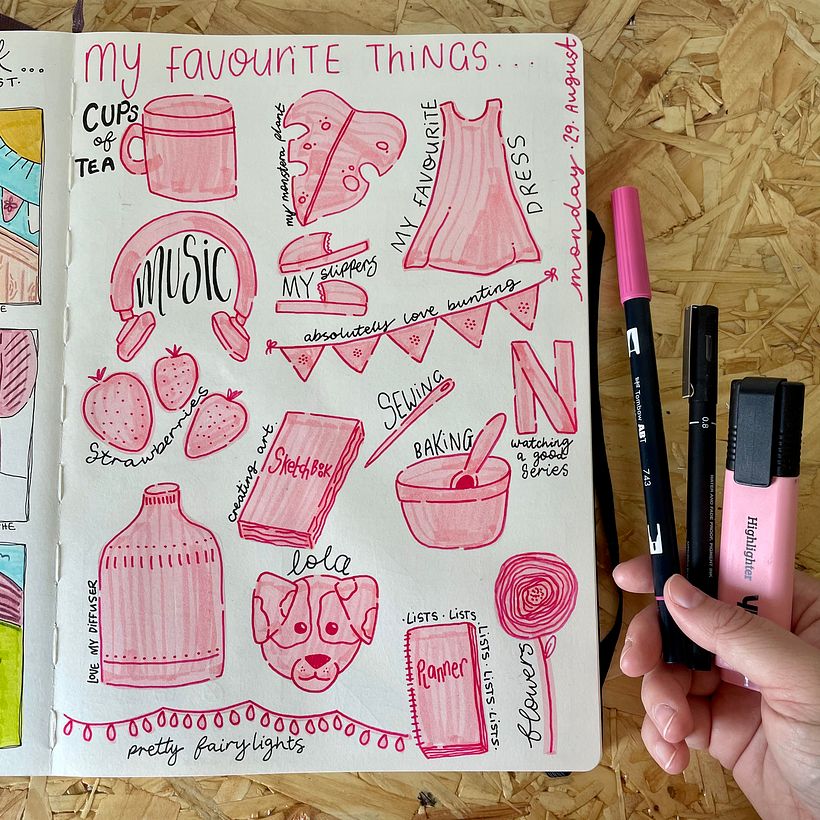 MY FAVOURITE THINGS...
monday 29. August
CUPS
of
TEA
my monstera plant
MY FAVOURITE
DRESS
MUSIC
MY slippers
absolutely love bunting
Strawberries
SEWING
N
watching
a good
series
creating art.
SketchBook
BAKING
LOVE MY DIFFUSER
lola
.LISTS.LISTS
.LISTS.LISTS.LISTS.
Planner
flowers
pretty fairylights
Tombow ABT
743
0.8
WATER AND FADE PROOF, PIGMENT INK
Highlighter